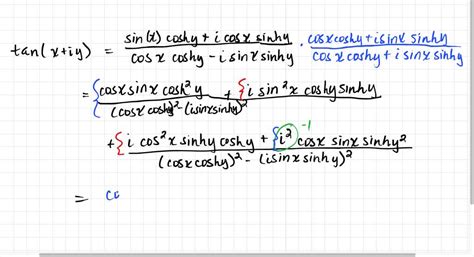 tan(x+iy) = (sin(x) coshy + i cosx sinhy)/(cosx coshy − i sinx sinhy) · (cosxcoshy+isinx sinhy)/(cosxcoshy+i sinx sinhy)
= {cosxsinx cosh²y + {i sin²x coshysinhy / (cosx coshy)² − (isinxsinhy)²
+{i cos²x sinhy coshy + {i² -1 cosx sinx sinhy² / (cosxcoshy)² − (isinxsinhy)²
= co